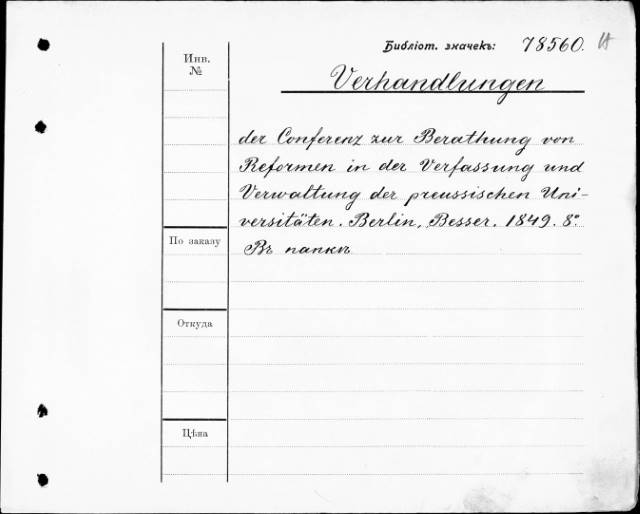 Библіот. значекъ: 78560.
Инв.
№
Verhandlungen
der Conferenz zur Berathung von
Reformen in der Verfassung und
Verwaltung der preussischen Uni-
versitäten. Berlin, Besser. 1849. 8°
По заказу
Въ папкѣ
Откуда
Цѣна